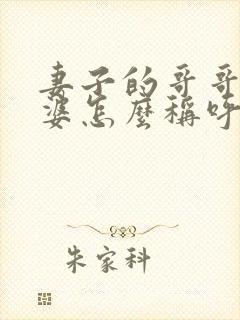 妻子的哥哥
婆怎麼稱呼
朱家科